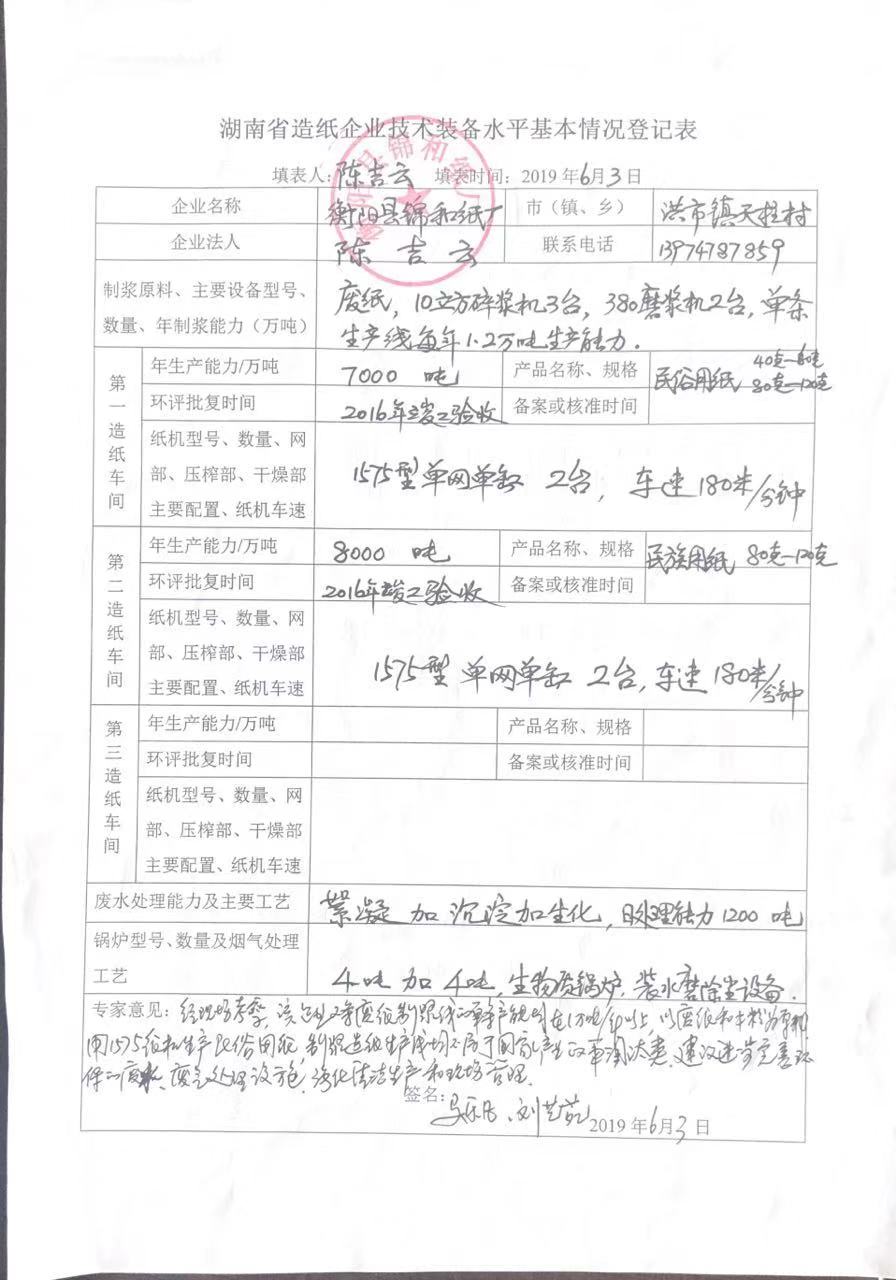 湖南省造纸企业技术装备水平基本情况登记表
填表人: 陈吉云 填表时间: 2019年6月3日
企业名称 衡阳县锦和纸厂 市(镇、乡) 洪市镇天柱村
企业法人 陈吉云 联系电话 13974787859
制浆原料、主要设备型号、 废纸,10立方碎浆机3台,380磨浆机2台,单条
数量、年制浆能力(万吨) 生产线每年1.2万吨生产能力.
第一造纸车间
年生产能力/万吨 7000 吨 产品名称、规格 民俗用纸 40克-80克
80克-120克
环评批复时间 2016年竣工验收 备案或核准时间
纸机型号、数量、网
部、压榨部、干燥部 1575型单网单缸 2台, 车速180米/分钟
主要配置、纸机车速
第二造纸车间
年生产能力/万吨 8000 吨 产品名称、规格 民族用纸 80克-120克
环评批复时间 2016年竣工验收 备案或核准时间
纸机型号、数量、网
部、压榨部、干燥部 1575型 单网单缸 2台,车速180米/分钟
主要配置、纸机车速
第三造纸车间
年生产能力/万吨 产品名称、规格
环评批复时间 备案或核准时间
纸机型号、数量、网
部、压榨部、干燥部
主要配置、纸机车速
废水处理能力及主要工艺 絮凝 加 沉淀加生化, 日处理能力1200吨
锅炉型号、数量及烟气处理
工艺 4吨 加 4吨,生物质锅炉,装水磨除尘设备.
专家意见: 经现场考察,该企业 废纸制浆 在1万吨/年以上,以废纸和
用1575纸机生产民俗用纸,制浆造纸生产线 不属于国家产业政策淘汰类,建议进一步完善环
保的废水、废气处理设施,强化清洁生产和现场管理.
签名:
2019年6月3日